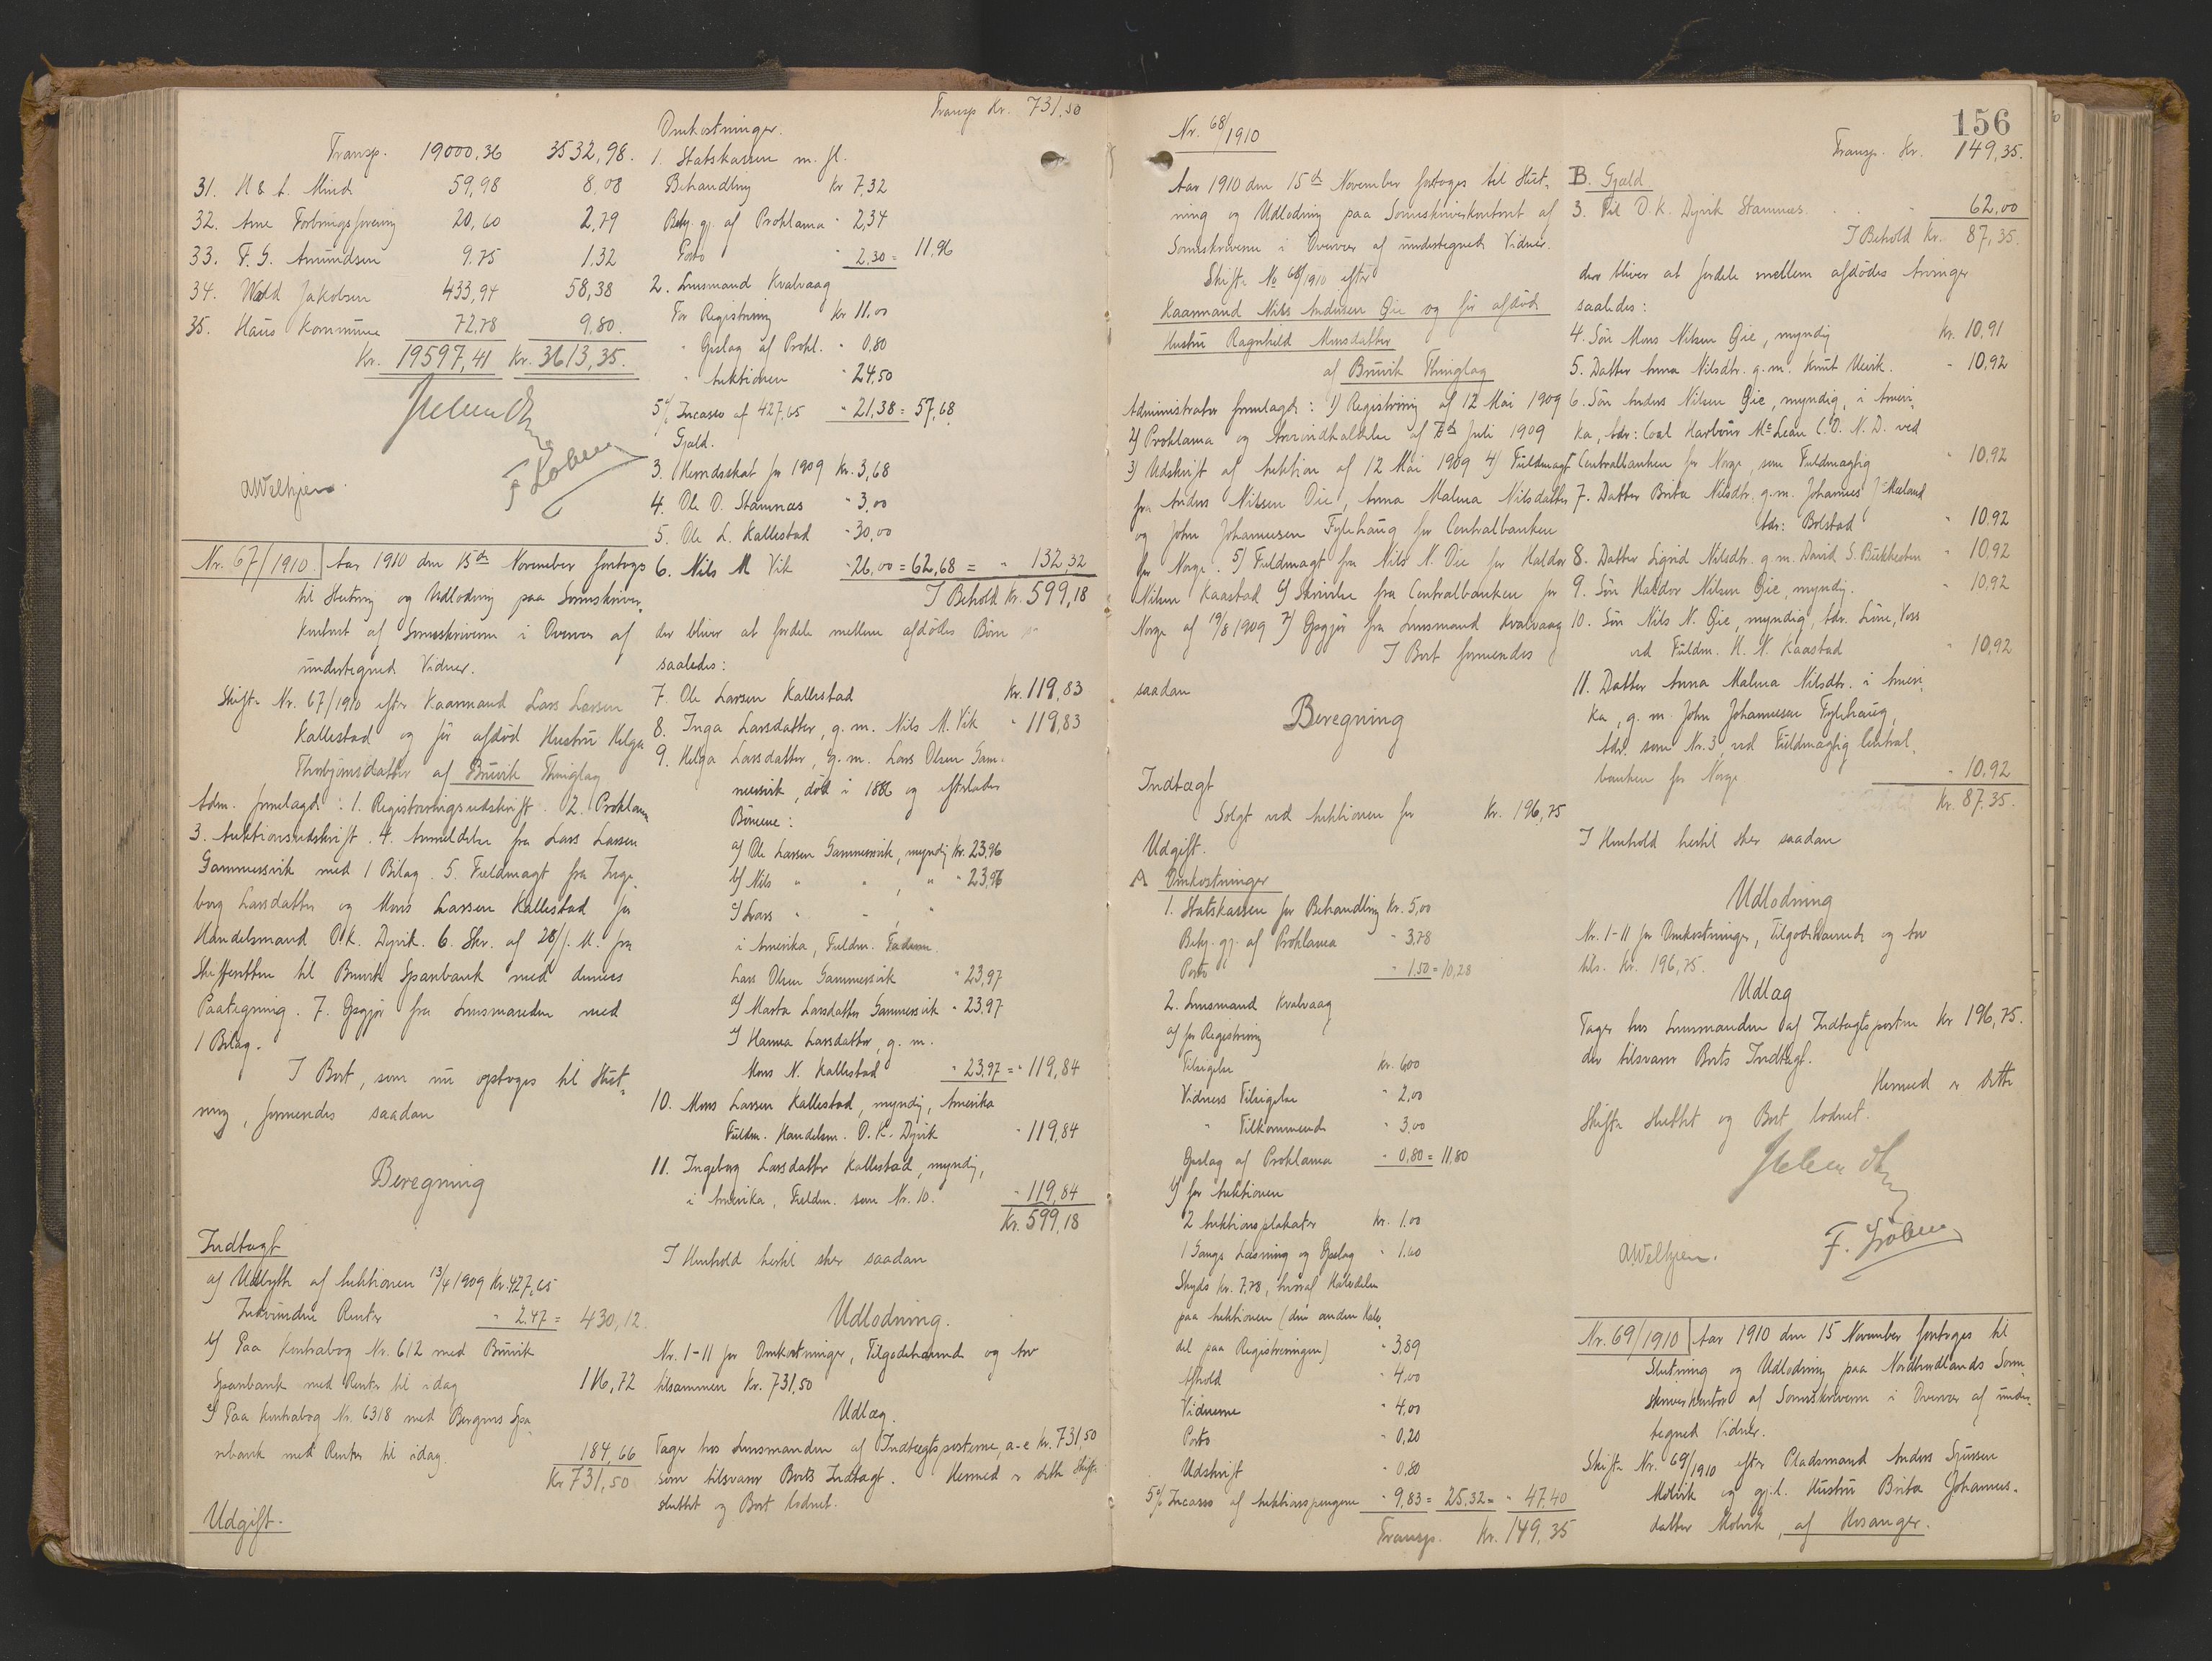 Transp. 19000,36 3532,98.
31. N & A. Mind 59,98 8,08
32. Arne Forbrugsforening 20,60 2,79
33. F. G. Amundsen 9.75 1,32
34. Wald Jakobsen 433,94 58,38
35. Haus Kommune 72,78 9,80.
Kr. 19597,41 Kr. 3613,35.
Nr. 67/1910. Aar 1910 den 15de November foretoges
til Slutning og Udlodning paa Sorenskriver-
kontoret af Sorenskriveren i Overvær af
undertegnede Vidner.
Skifte Nr. 67/1910 efter Kaarmand Lars Larsen
Kallestad og før afdød Hustru Helga
Thorbjørnsdatter af Bruvik Thinglag
Adm. fremlagde: 1. Registreringsudskrift. 2. Proklama
3. Auktionsudskrift. 4. Anmeldelse fra Lars Larsen
Gammersvik med 1 Bilag. 5. Fuldmagt fra Inge-
borg Larsdatter og Mons Larsen Kallestad for
Handelsmand O.K. Dyvik. 6. Skr. af 28/f. M. fra
Skifteretten til Bruvik Sparebank med dennes
Paategning. 7. Opgjør fra Lensmanden med
1 Bilag.
I Boet, som nu optoges til Slut-
ning, foreneedes saadan
Beregning
Indtægt
a) Udbytte af Auktionen 13/4 1909 Kr. 427,65
Indvundne Renter " 2.47 = 430,12.
b) Paa Kontrabog Nr. 612 med Bruvik
Sparebank med Renter til idag 116,72
c) Paa Kontrabog Nr. 6318 med Bergens Spa-
rebank med Renter til idag. 184,66
Kr 731,50
Udgift.
Transp Kr. 731,50
Omkostninger.
1. Statskassen m. fl.
Behandling Kr 7,32
Bekj. gj. af Proklama " 2,34
Porto " 2,30 = 11,96
2. Lensmand Kvalvaag
For Registrering Kr 11,00
" Opslag af Prokl. " 0,80
" Auktionen " 24,50
5% Incasso af 427,65 " 21,38 = 57,68
Gjæld.
3. Herredsskat for 1909 Kr. 3,68
4. Ole O. Stamnes " 3,00
5. Ole L. Kallestad " 30,00
6. Nils M Vik " 26,00 = 62,68 = " 132,32
I Behold Kr. 599,18
der bliver at fordele mellem afdødes Børn
saaledes:
7. Ole Larsen Kallestad Kr. 119,83
8. Inga Larsdatter, g. m. Nils M. Vik " 119,83
9. Helga Larsdatter, g. m. Lars Olsen Gam-
mersvik, død i 1886 og efterlader
Børnene:
a) Ole Larsen Gammersvik, myndig Kr. 23,96
b) Nils " " , " " 23,96
c) Lars " " , "
i Amerika, Fuldm. Faderen
Lars Olsen Gammersvik " 23,97
d) Marta Larsdatter Gammersvik " 23,97
e) Hanna Larsdatter, g. m.
Mons N. Kallestad " 23,97 = " 119,84
10. Mons Larsen Kallestad, myndig, Amerika
Fuldm. Handelsm. O. K. Dyvik " 119,84
11. Ingeborg Larsdatter Kallestad, myndig,
i Amerika, Fuldm. som Nr. 10. " 119,84
Kr. 599,18
I Henhold hertil sker saadan
Udlodning.
Nr. 1-11 for Omkostninger, Tilgodehavende og Arv
tilsammen Kr. 731,50
Udlæg.
Tages hos Lensmanden af Indtægtsposterne, a-c Kr. 731,50
som tilsvarer Boets Indtægt. Hermed er dette Skifte
sluttet og Boet lodnet.
Nr. 68/1910
Aar 1910 den 15de November foretoges til Slut-
ning og Udlodning paa Sorenskriverkontoret af
Sorenskriveren i Overvær af undertegnede Vidner.
Skifte No 68/1910 efter
Kaarmand Nils Andersen Øie og før afdøde
Hustru Ragnhild Monsdatter
af Bruvik Thinglag
Administrator fremlagde: 1) Registrering af 12 Mai 1909
2) Proklama og Arveindkaldelse af 7de Juli 1909
3) Udskrift af Auktion af 12 Mai 1909 4) Fuldmagt
fra Anders Nilsen Øie, Anna Malena Nilsdatter
og John Johannesen Fylehaug for Centralbanken
for Norge. 5) Fuldmagt fra Nils N. Øie for Haldor
Nilsen Kaastad 6) Skrivelse fra Centralbanken for
Norge af 19/8 1909 7) Opgjør fra Lensmand Kvalvaag
I Boet foreneedes
saadan
Beregning
Indtægt
Solgt ved Auktionen for Kr. 196,75
Udgift.
A Omkostninger
1. Statskassen for Behandling Kr. 5,00
Bekj. gj. af Proklama " 3,78
Porto " 1,50 = 10,28
2. Lensmand Kvalvaag
a) for Registrering
Tilsigelse Kr. 6,00
Vidners Tilsigelse " 2,00
" Tilkommende " 3,00
Opslag af Proklama " 0,80 = 11,80
b) for Auktionen
2 Auktionsplakater Kr. 1,00
1 Gangs Læsning og Opslag " 1,60
Skyds Kr. 7.78, hvoraf Halvdelen
paa Auktionen (den anden Halv-
del paa Registreringen) " 3,89
Afhold " 4,00
Vidnerne " 4,00
Porto " 0,20
Udskrift " 0,80
5% Incasso af Auktionspengene " 9,83 = 25,32 = " 47,40
Transp. Kr. 149,35
156
Transp. Kr. 149,35.
B. Gjæld
3. Til O. K. Dyvik Stamnes . . " 62,00
I Behold Kr. 87,35.
der bliver at fordele mellem afdødes Arvinger
saaledes:
4. Søn Mons Nilsen Øie, myndig Kr. 10,91
5. Datter Anna Nilsdtr. g. m. Knut Ulvik. " 10,92
6. Søn Anders Nilsen Øie, myndig, i Ameri-
ka, Adr: Coal Harbour Mc Lean C. O. N. D. ved
Centralbanken for Norge, som Fuldmægtig " 10,92
7. Datter Brita Nilsdtr. g. m. Johannes J. Mæland
Adr: Bolstad " 10,92
8. Datter Sigrid Nilsdtr. g. m. David S. " 10,92
9. Søn Haldor Nilsen Øie, myndig. " 10,92
10. Søn Nils N. Øie, myndig, Adr. Lone, Voss
ved Fuldm. H. N. Kaastad " 10,92
11. Datter Anna Malena Nilsdtr. i Ameri-
ka, g. m. John Johannesen Fylehaug,
Adr. som Nr. 3, ved Fuldmægtig Central-
banken for Norge " 10,92
Kr. 87,35.
I Henhold hertil sker saadan
Udlodning
Nr. 1-11 for Omkostninger, Tilgodehavende og Arv
tils. Kr. 196,75.
Udlæg
Tages hos Lensmanden af Indtægtsposten Kr 196,75.
der tilsvarer Boets Indtægt.
Hermed er dette
Skifte sluttet og Boet lodnet.
Nr. 69/1910 Aar 1910 den 15 November foretoges til
Slutning og Udlodning paa Nordhordlands Soren-
skriverkontor af Sorenskriveren i Overvær af under-
tegnede Vidner.
Skifte Nr. 69/1910 efter Pladsmand Anders Sjursen
Molvik og gj.l. Hustru Brita Johannes-
datter Molvik, af Hosanger.